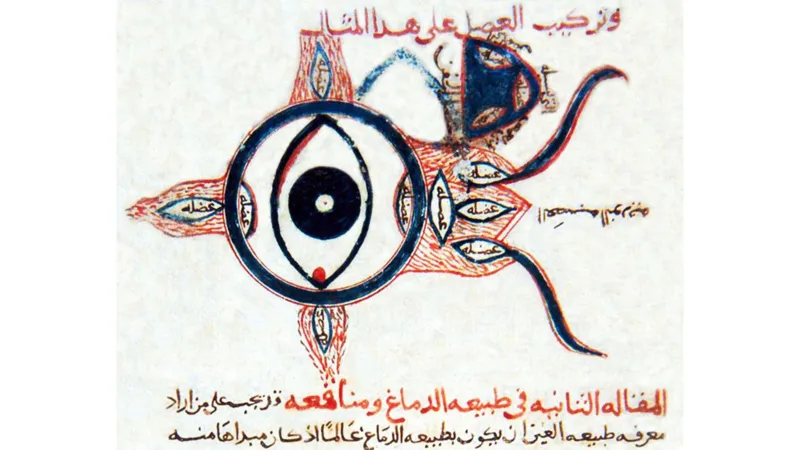 وتركيب العضل على هذا المثال
عضله
عضله
عضله
عضله
عضله
عضله
عضله
عضله
عضله
المقاله الثانيه في طبيعه الدماغ ومنافعه قد يجب على من اراد
معرفه طبيعه العين ان يكون بطبيعه الدماغ عالمًا اذ كان مبداها منه